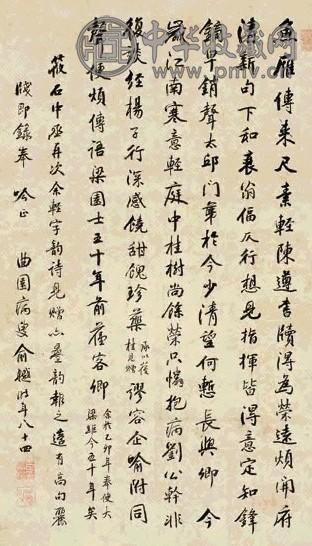 魚雁傳來尺素輕陳遵書牘得為榮遠煩開府
清新句下和衰翁偪仄行想見指揮皆得意定知鋒
鏑早銷聲太邱門第於今少清望何慙長與卿 今
歲江南寒意輕庭中桂樹尚餘榮只憐抱病劉公幹非
復談經楊子行深感饒甜餽珍藥 承以葠桂見贈 謬容企喻附同
聲便煩傳語梁園士五十年前舊客卿 余於乙卯年奉使大梁距今五十年矣
筱石中丞再次余輕字韻詩見贈亦疊韻報之適有高句麗
牋即錄奉 吟正 曲園病叟俞樾時年八十四
中华收藏网